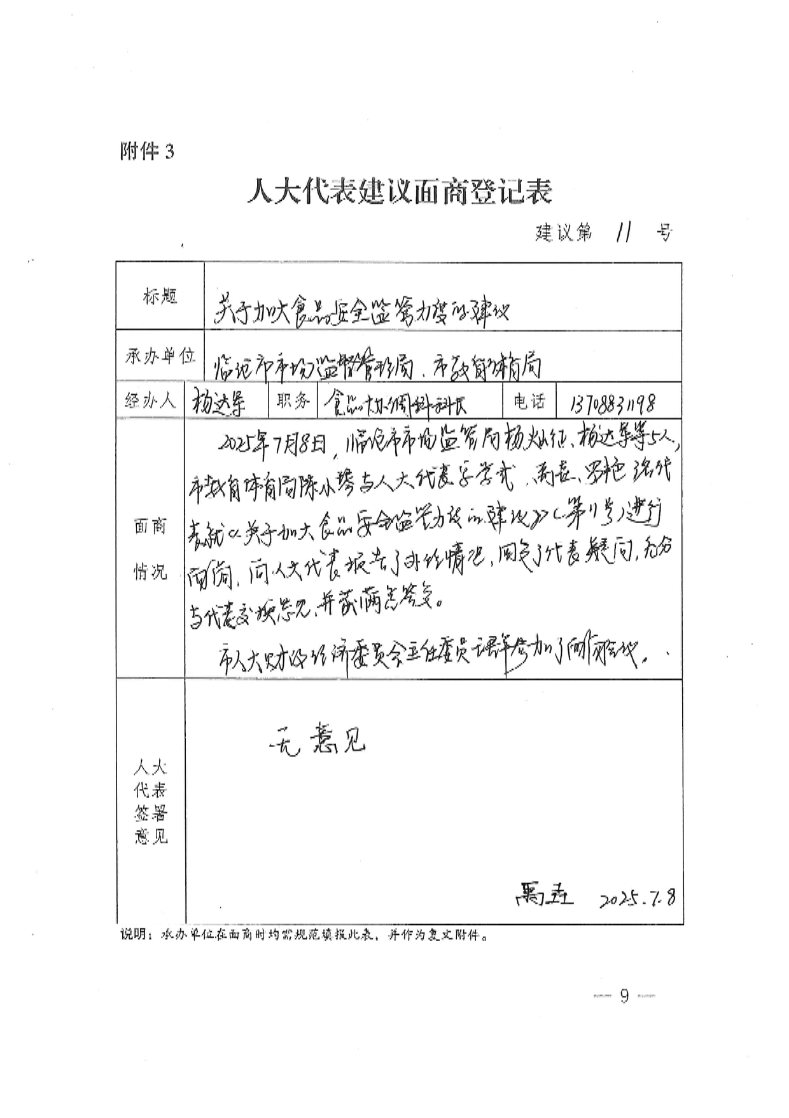 附件 3
人大代表建议面商登记表
建议第 11 号
标题 关于加大食品安全监管力度的建议
承办单位 临沧市市场监督管理局、市教育体育局
经办人 杨达 职务 食品协调科科长 电话 13708831198
2025年7月8日,临沧市市场监管局杨 杨达 等5人,
市教育体育局陈小 与人大代表 禹垚、罗艳 代
面商情况
表就《关于加大食品安全监管力度的建议》(第11号)进行
面商,向人大代表报告了办理情况,回复了代表疑问,充分
与代表交换意见,并获满意答复。
市人大财政经济委员会主任委员 群参加了面商会议。
无意见
人大
代表
签署
意见
禹垚 2025.7.8
说明:承办单位在面商时均需规范填报此表,并作为复文附件。
— 9 —